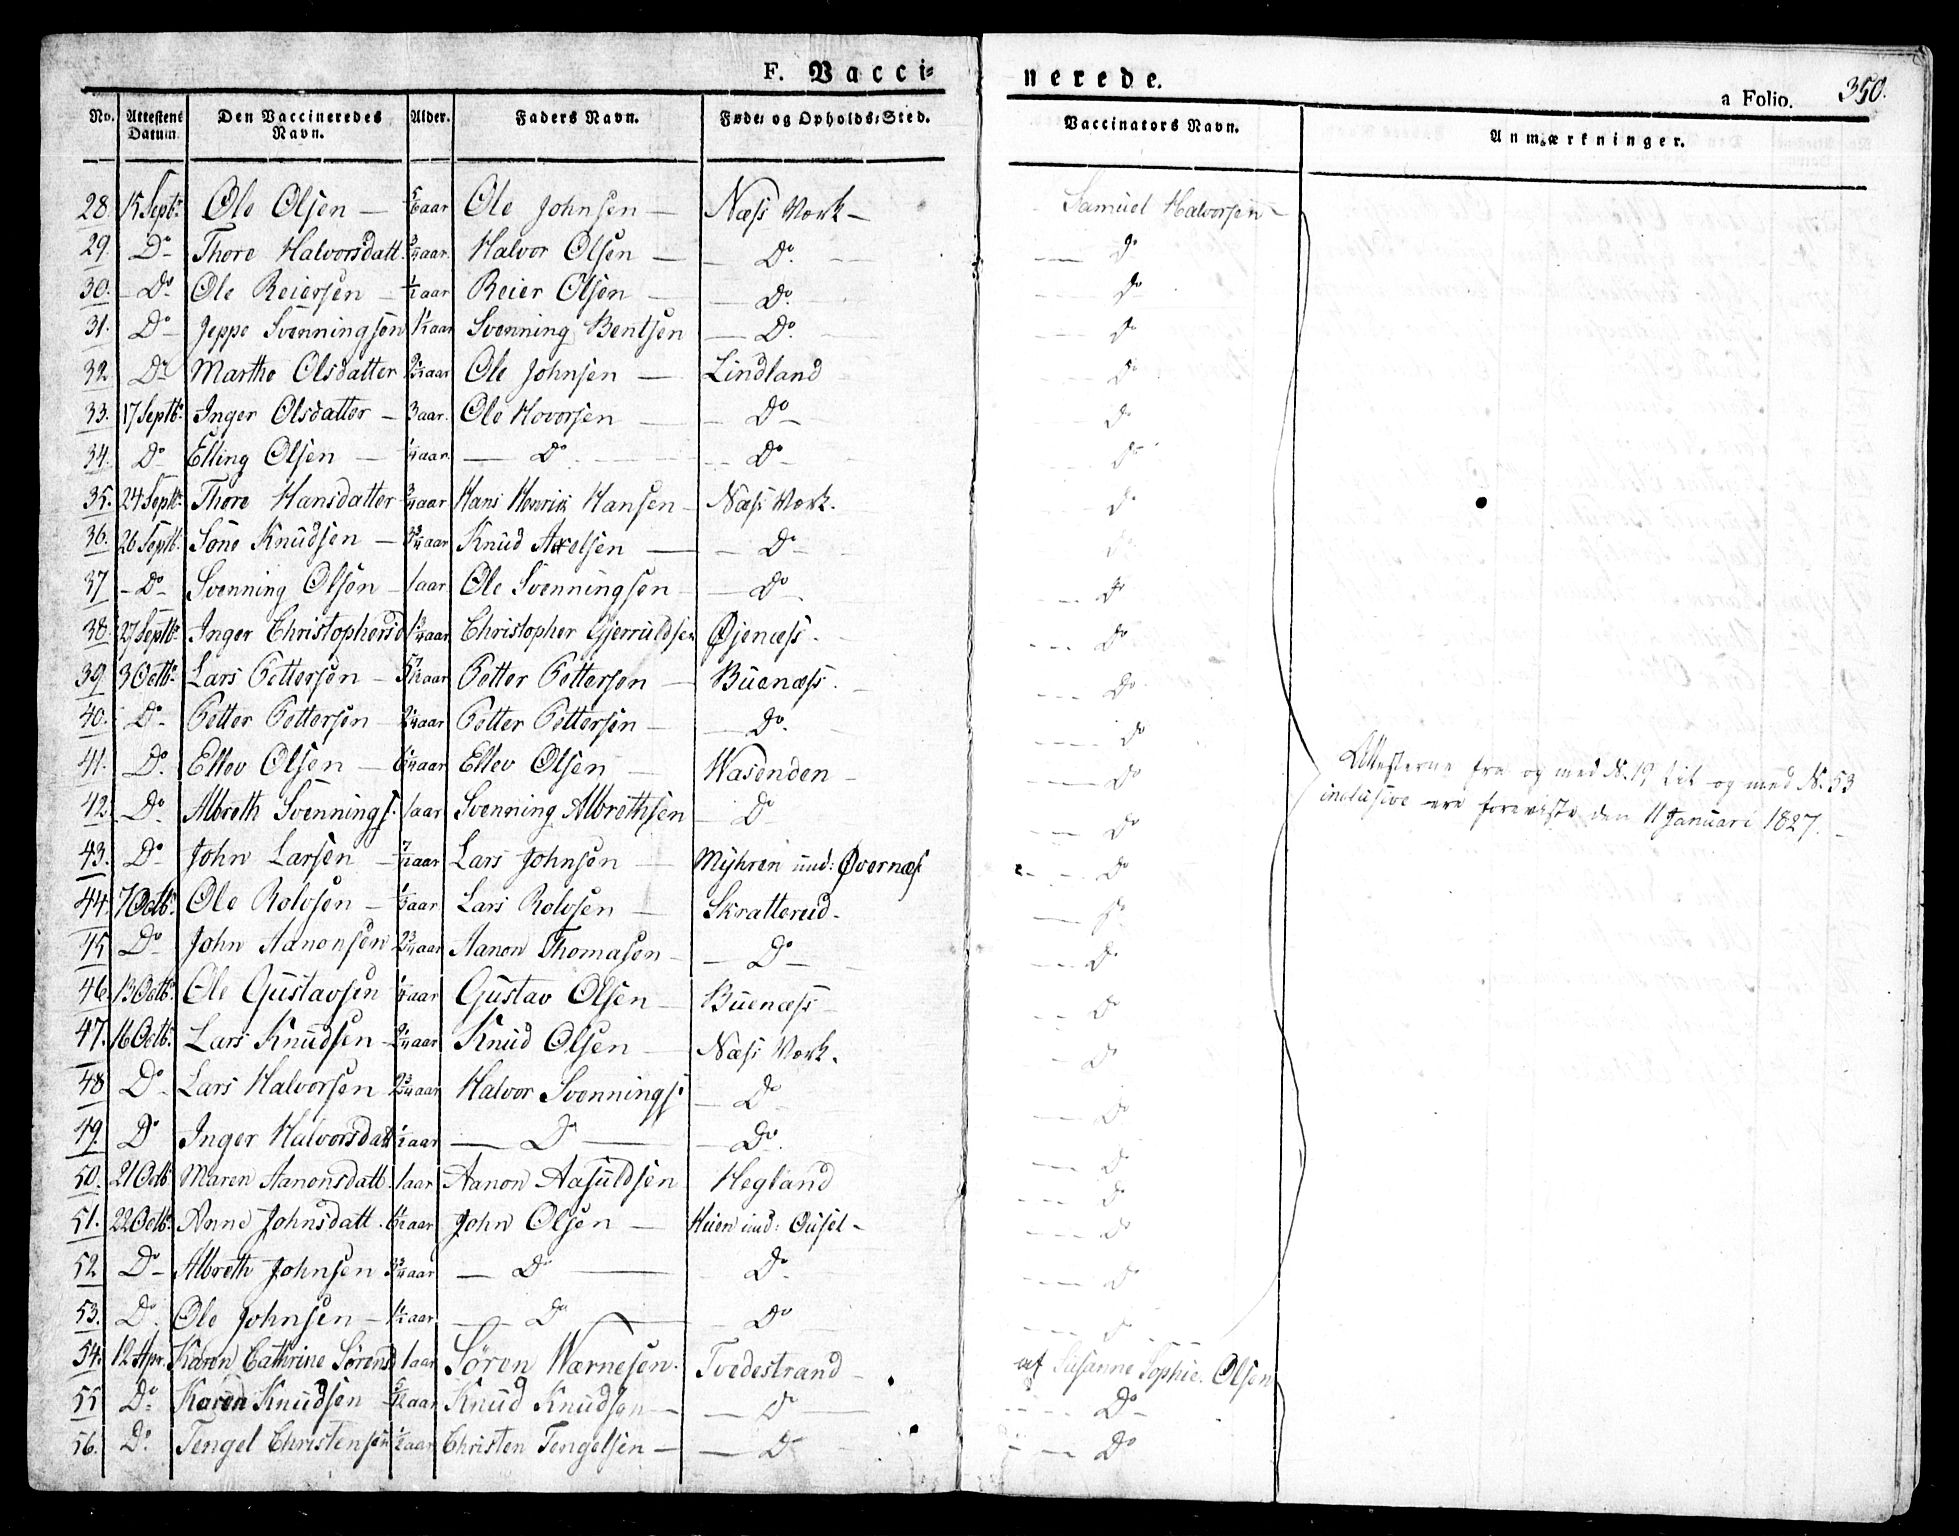 F. Vacci- nerede.
a Folio. 350.
No. Attestens Datum. Den Vaccineredes Navn. Alder. Faders Navn. Føde- og Opholds-Sted. Vaccinators Navn. Anmærkninger.
28. 15 Septbr. Ole Olsen — 5/6 aar Ole Johnsen — Næss Værk — Samuel Halvorsen —
29. Do Thore Halvorsdatt. 3/4 aar. Halvor Olsen — Do. Do
30. Do Ole Reiersen — 1/2 aar Reier Olsen — Do. Do
31. Do Jeppe Svenningsen 1 1/2 aar Svenning Bentsen — Do. Do
32 Do Marthe Olsdatter aar Ole Johnsen — Lindland Do
33. 17 Septbr. Inger Olsdatter — 3 aar. Ole Hovorsen — Do Do
34. Do Elling Olsen — 1/4 aar. — Do — Do Do
35. 24 Septbr. Thore Hansdatter 3/4 aar Hans Henrik Hansen — Næss Værk. Do
36. 26 Septbr. Søne Knudsen — 3 3/4 aar Knud Axelsen — Do Do
37 Do Svenning Olsen — 1 aar. Ole Svenningsen — Do Do
38. 27 Septbr. Inger Christophersd aar Christopher Gjerruldsen Øjenæss. Do
39. 3 Octbr. Lars Pettersen — aar Petter Pettersen — Buenæss. Do
40. Do Petter Pettersen 2 1/4 aar Petter Pettersen — Do. Do
41. Do. Ellev Olsen — 6 1/4 aar Ellev Olsen — Wasenden — Do
Attesterne fra og med N. 19 til og med N. 53
42. Do Albreth Svennings. 1 aar Svenning Albrethsen Do Do
inclusive ere foreviste den 11 Januari 1827. —
43. Do John Larsen — 7/12 aar Lars Johnsen — Myhren und: Øvernæs Do
44. 7 Octbr. Ole Rolvsen — 1/3 aar Lars Rolvsen — Skratterud — Do
45 Do John Aanonsen 2 3/4 aar Aanon Thomasen — Do Do
46. 13 Octbr. Ole Gustavsen 1/4 aar Gustav Olsen — Buenæss — Do
47. 16 Octbr. Lars Knudsen — 2 1/4 aar Knud Olsen — Næss Værk. Do
48 Do Lars Halvorsen 2 3/4 aar Halvor Svennings. — Do Do
49. Do Inger Halvorsdatt 1/2 aar — Do — Do. Do
50. 21 Octbr Maren Aanonsdatt. 1 aar Aanon Aasuldsen Hegland Do
51. 22 Octbr. Anne Johnsdatt. 6 1/2 aar John Olsen — Heien und: Ousel — Do
52 Do Albreth Johnsen 3 3/4 aar — Do — Do Do
53. Do. Ole Johnsen — 1 1/2 aar. — Do — Do Do
54. 12 Apr. Karen Cathrine Sørensd 1 aar Søren Warnesen. Tvedestrand — af Susanne Sophie Olsen
55 Do Karen Knudsen — 5/12 aar Knud Knudsen — Do — Do
56. Do. Tengel Christensen 1/2 aar Christen Tengelsen — Do Do